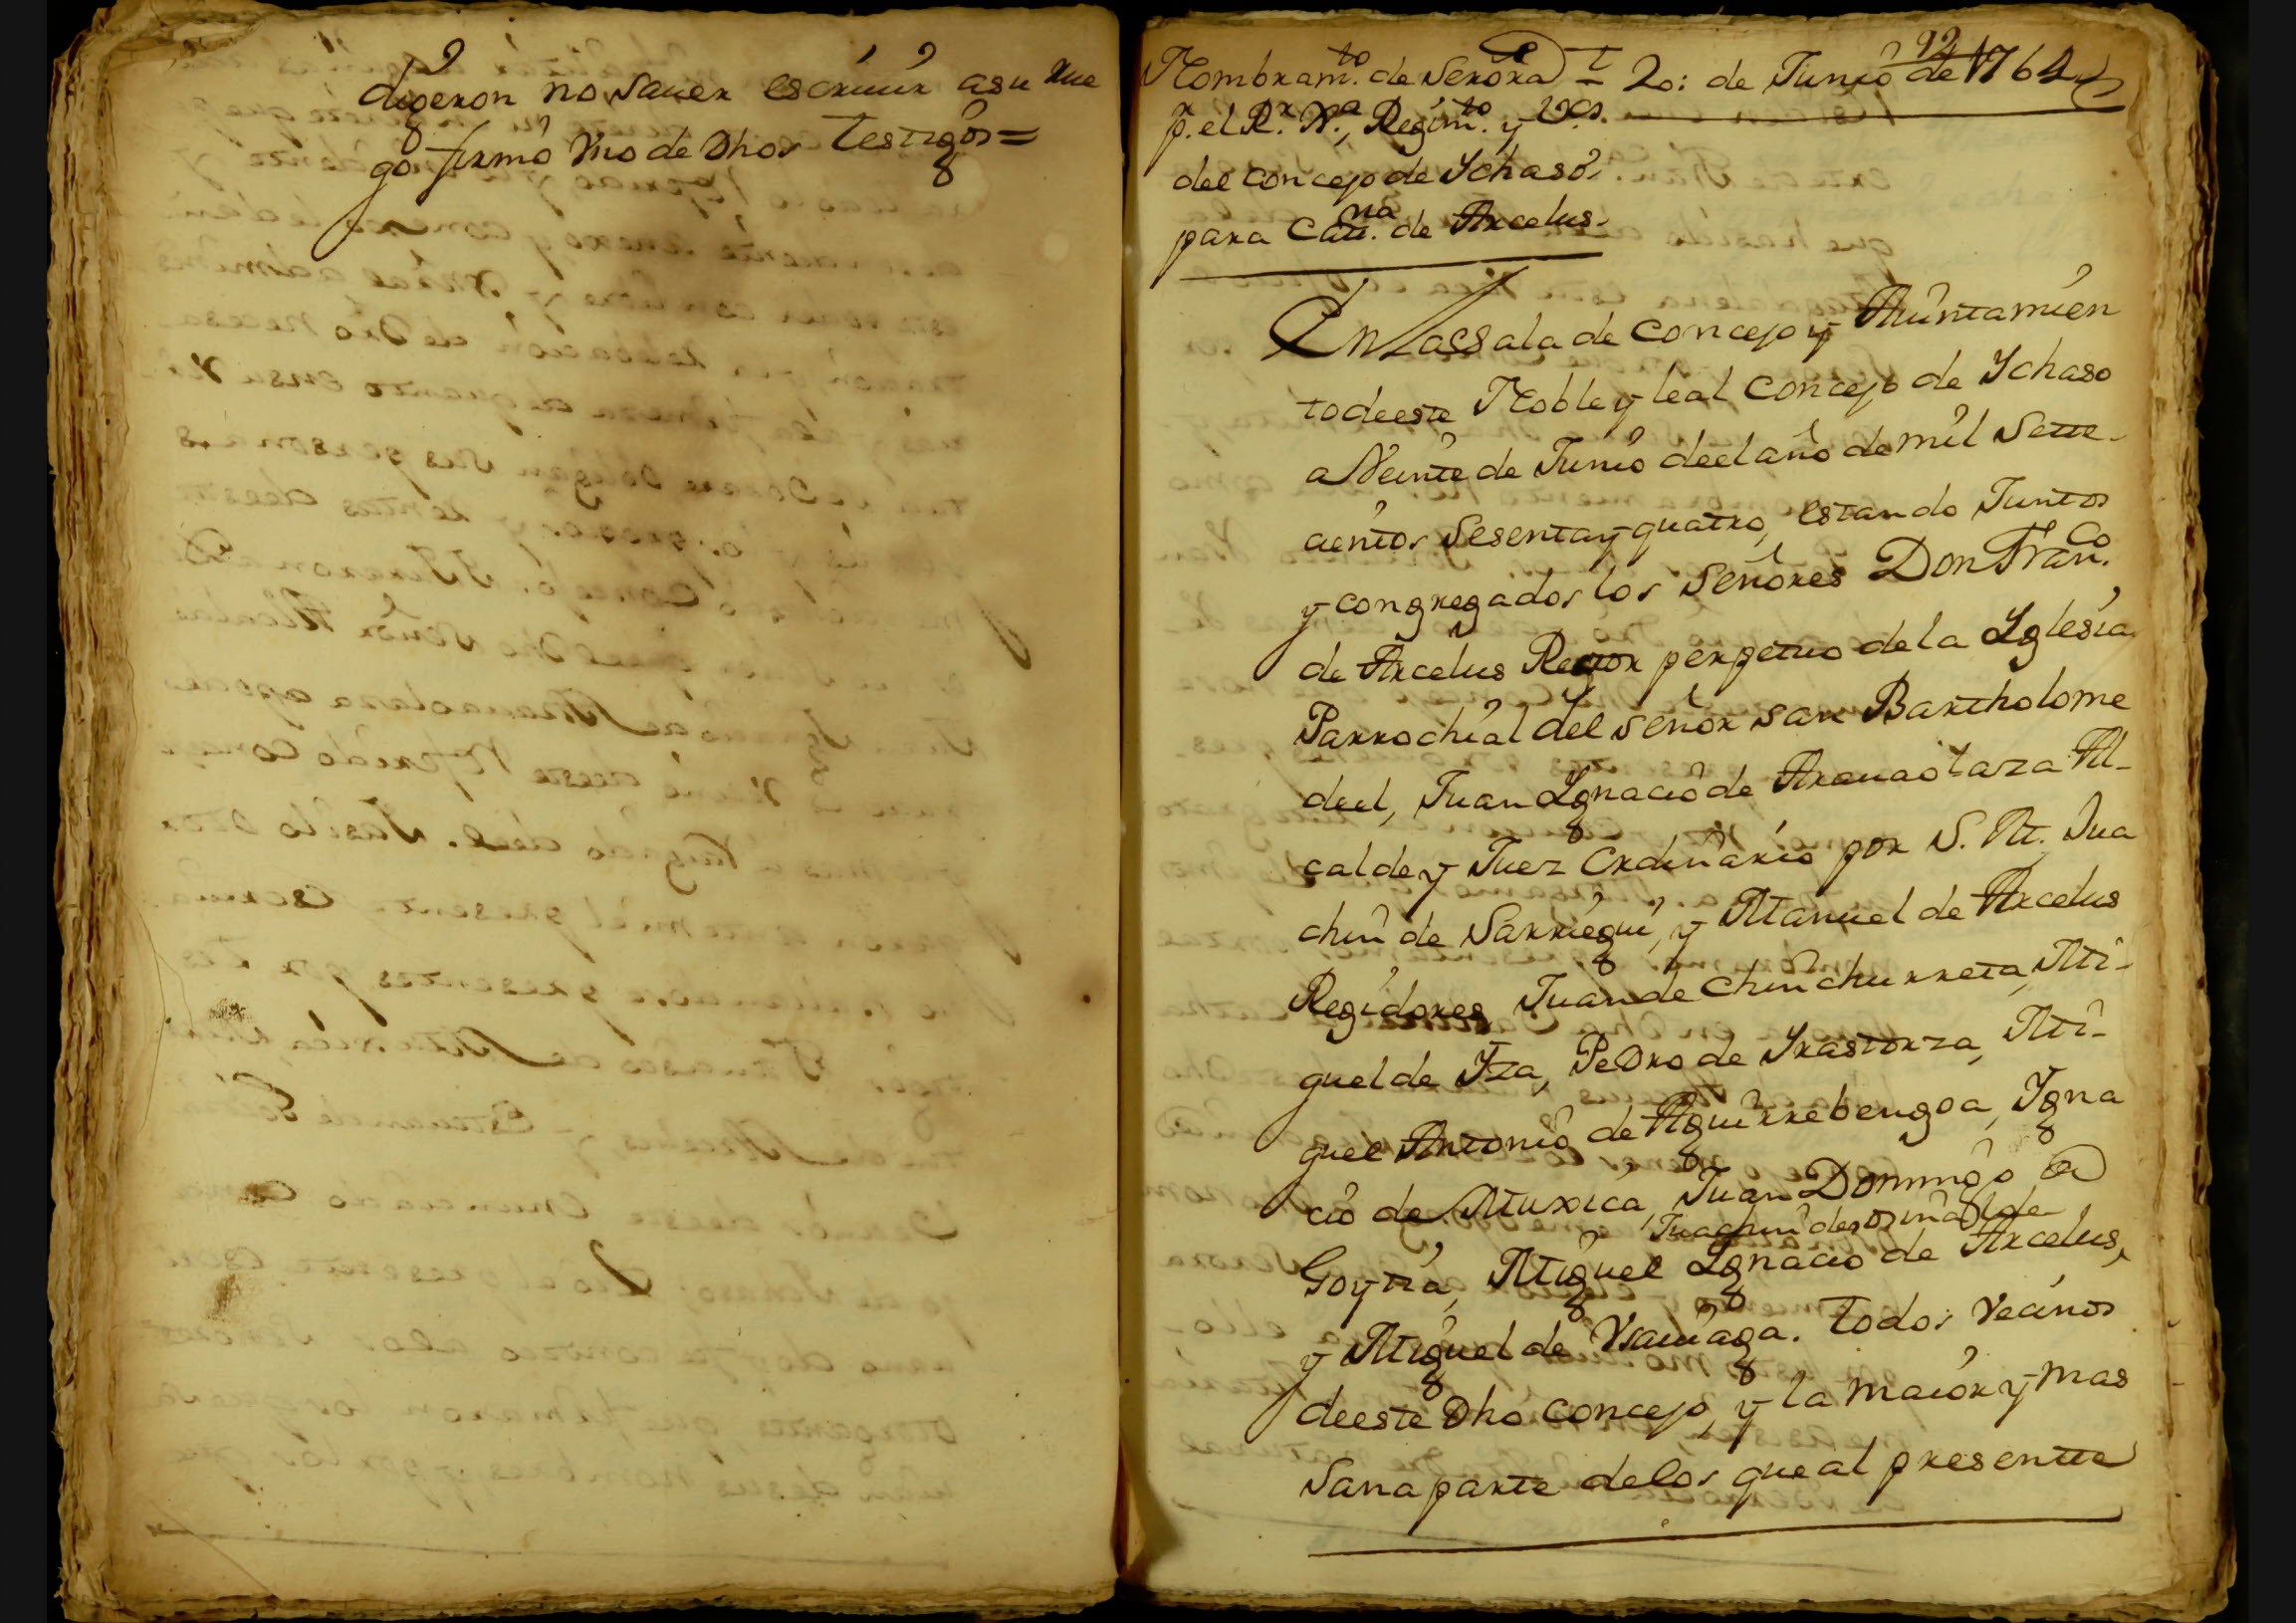 digeron no saver escriuir asu Rue
go firmô Vno de Dhos testigos=
92
Nombram.to de Serora 20: de Junio de 1764
p. el R.r V.a, Regim.to y V.os
del concejo de Ychaso
para Catt.na de Arcelus.
En La Ssala de concejo y Aiuntamien
to de este Noble y leal Concejo de Ychaso
a Veinte de Junio de el año de mil Sette-
cientos Sesenta y quatro, estando Juntos
y congregados los Señores Don Fran.co
de Arcelus Rector perpetuo de la Yglesia
Parrochial del Señor San Bartholome
de el, Juan Ygnacio de Aramaolaza Al-
calde y Juez Ordinario por S. M. Jua
chin de Sarriegui, y Manuel de Arcelus
Regidores, Juan de Chinchurreta, Mi-
guel de Yza, Pedro de Yrastorza, Mi-
guel Antonio de Aguirrebengoa, Ygna
cio de Muxica, Juan Domingo de
Juachin de
Goytia, Miguel Ygnacio de Arcelus,
y Miguel de Vsauiaga. todos Vecinos
de este Dho Concejo, y la maior y mas
Sana parte de los que al presentte